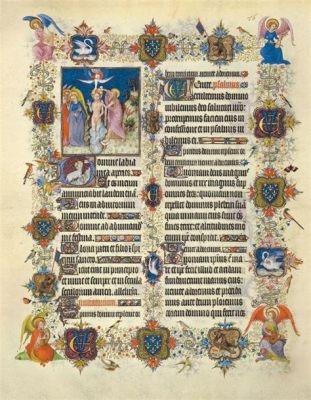 Domine labia
mea aperies. Et os meum
annunciabit laudem tuam.
Deus in adiutorium
meum intende.
Domine ad adiuuandum
me festina.
Gloria patri et filio et spi
ritui sancto.
Sicut erat in principio
et nunc et semper et in secula
seculorum amen. alleluia.
uenite adoremus.
Uenite. psalmus
exultemus domino
iubilemus deo salutari
faciem eius in
confessione et in psalmis iu
bilemus ei.
Quoniam deus
et rex magnus super
omnes deos: quoniam non
repellet dominus plebem suam
quia in manu eius sunt fi
nes terre: et altitudines mon
tium ipse conspicit.
Quoniam ipsius est ma
re et ipse fecit illud et aridam
fundauerunt manus eius:
uenite adoremus et procida
mus ante deum ploremus
coram domino qui fecit nos